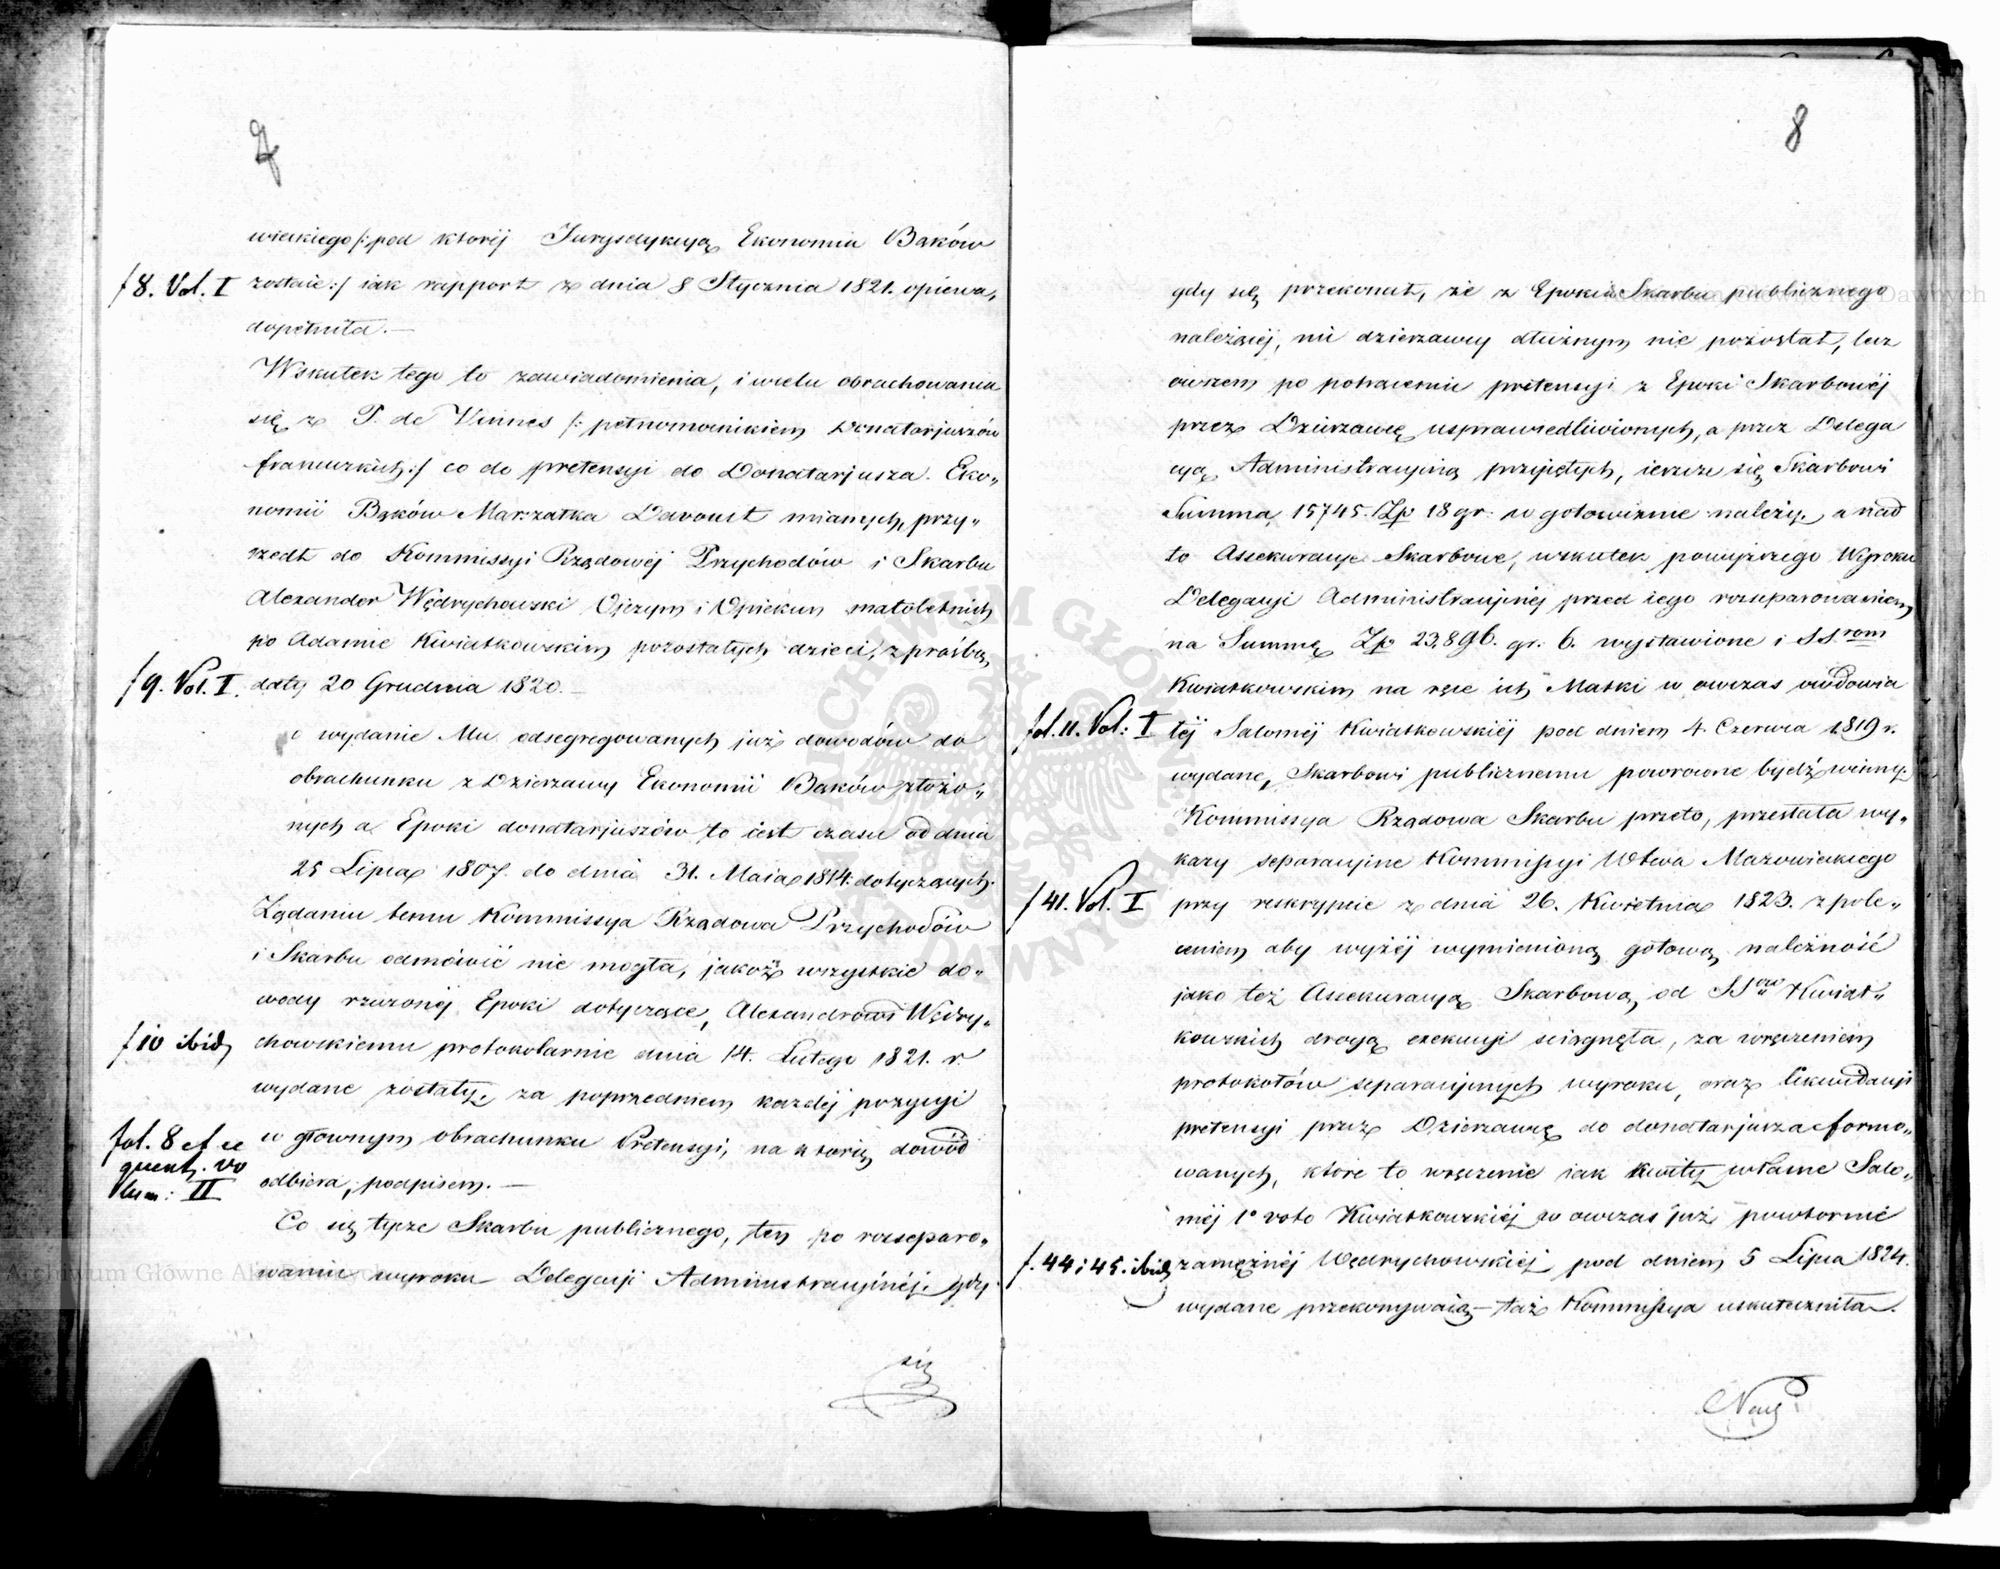 7
wieckiego /: pod któréj Jurysdykcyą Ekonomia Bąków
f 8. Vol. I
zostaie :/ iak rapport z dnia 8 Stycznia 1821. opiewa,
dopełniła. —
Wskutek tego to zawiadomienia, i wielu obrachowania
się z P. de Vinnes /: pełnomocnikiem Donatarjuszów
francuzkich :/ co do pretensyi do Donatarjusza Eko„
nomii Bąków Marszałka Davoust mianych, przy„
szedł do Kommissyi Rządowéj Przychodów i Skarbu
Alexander Wędrychowski Ojczym i Opiekun małoletnich
po Adamie Kwiatkowskim pozostałych dzieci, z prośbą
f 9. Vol. I.
daty 20 Grudnia 1820. —
o wydanie Mu odsegregowanych już dowodów do
obrachunku z Dzierzawy Ekonomii Bąków złożo„
nych a Epoki donatarjuszów to iest czasu od dnia
25 Lipca 1807. do dnia 31. Maia 1814. dotyczących.
Żądaniu temu Kommissya Rządowa Przychodów
i Skarbu odmówić nie mogła, jakoż wszystkie do„
wody rzeczonéj Epoki dotyczące, Alexandrowi Wędry„
f 10 ibid
chowskiemu protokolarnie dnia 14. Lutego 1821. r.
wydane zostały, za poprzedniem każdéj pozycyi
fol. 8 et se
quent. Vo
lum: II
w głownym obrachunku Pretensyi, na którą dowód
odbiera, podpisem. —
Co się tycze Skarbu publicznego, ten po rozseparo„
waniu wyroku Delegacyi Administracyjnéj, gdy
się
8
gdy się przekonał, że z Epoki Skarbu publicznego
należącej, nic dzierzawcy dłużnym nie pozostał, lecz
owszem po potrąceniu pretensyi z Epoki Skarbowéj
przez Dzierzawcę usprawiedliwionych, a przez Delega
cyą Administracyiną przyiętych, ieszcze się Skarbowi
Summa 15745. Zp 18 gr. w gotowiznie należy, a nad
to Assekuracye Skarbowe, wskutek powyższego Wyroku
Delegacyi Administracyjnéj przed iego rozseparowaniem
na Summę Zp 23,896. gr. 6. wystawione i SS rom
Kwiatkowskim na ręce ich Matki w owczas owdowia
fol. 11. Vol: I
łéj Saloméj Kwiatkowskiéj pod dniem 4. Czerwca 1819 r.
wydane, Skarbowi publicznemu powrócone bydź winny.
Kommissya Rządowa Skarbu przeto, przesłała wy„
kazy separacyine Kommissyi Wtwa Mazowieckiego
f 41. Vol. I
przy reskrypcie z dnia 26. Kwietnia 1823. z pole„
ceniem aby wyżéj wymienioną gotową należność
jako też Assekuracyą Skarbową od SSów Kwiat„
kowskich drogą exekucyi ściągnęła, za wręczeniem
protokołów separacyjnych wyroku, oraz likwidacyi
pretensyi przez Dzierzawcę do donatarjusza formo„
wanych, które to wręczenie iak kwity własne Salo„
méj 1° voto Kwiatkowskiéj w owczas już powtornie
f. 44 i 45. ibid
zamężnéj Wędrychowskiéj pod dniem 5 Lipca 1824.
wydane przekonywaią — taż Kommissya uskuteczniła.